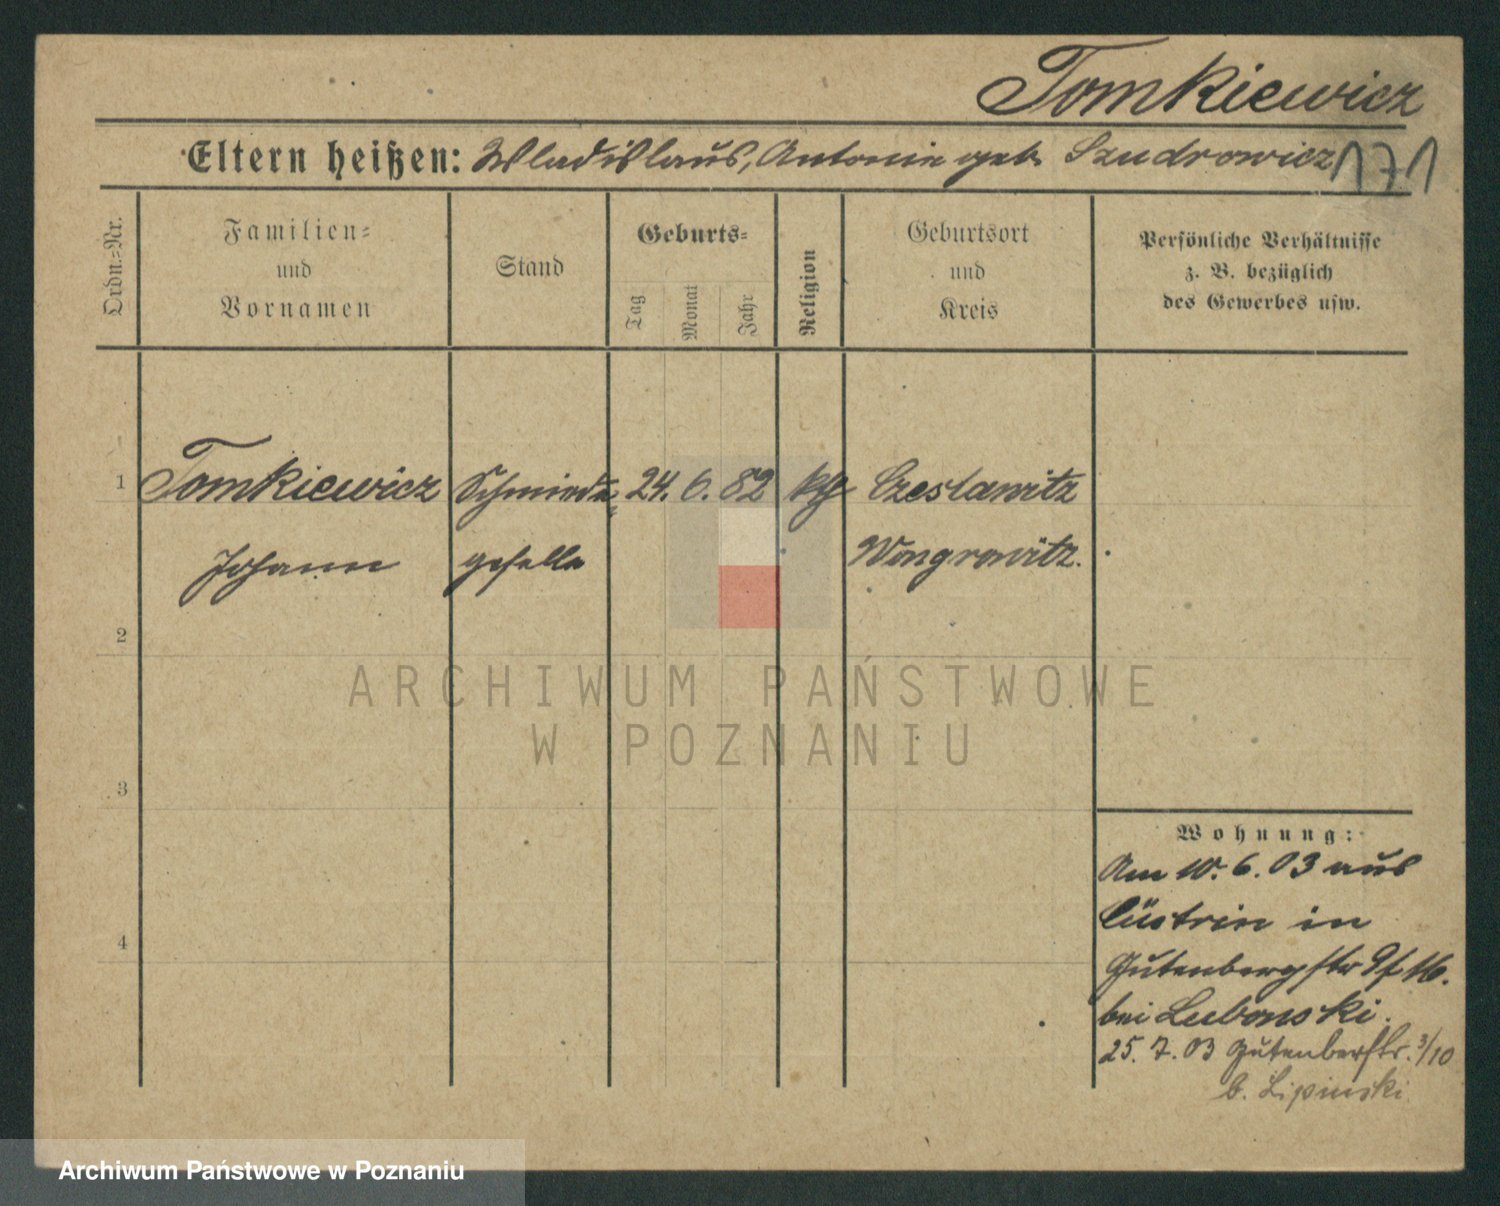 Tomkiewicz
Eltern heißen: Wladislaus, Antonie geb. Szudrowicz 171
Ordn.-Nr.
Familien-
und
Vornamen
Stand
Geburts-
Tag
Monat
Jahr
Religion
Geburtsort
und
Kreis
Persönliche Verhältnisse
z. B. bezüglich
des Gewerbes usw.
1 Tomkiewicz Schmiede- 24. 6. 82 kth Czeslawitz
Johann geselle Wongrowitz.
2
3
4
Wohnung:
Am 10. 6. 03 aus
Cüstrin in
Gutenbergstr
bei Lubonski.
25. 7. 03 Gutenberstr. 3/10
b. Lipinski
ARCHIWUM PAŃSTWOWE
W POZNANIU
Archiwum Państwowe w Poznaniu